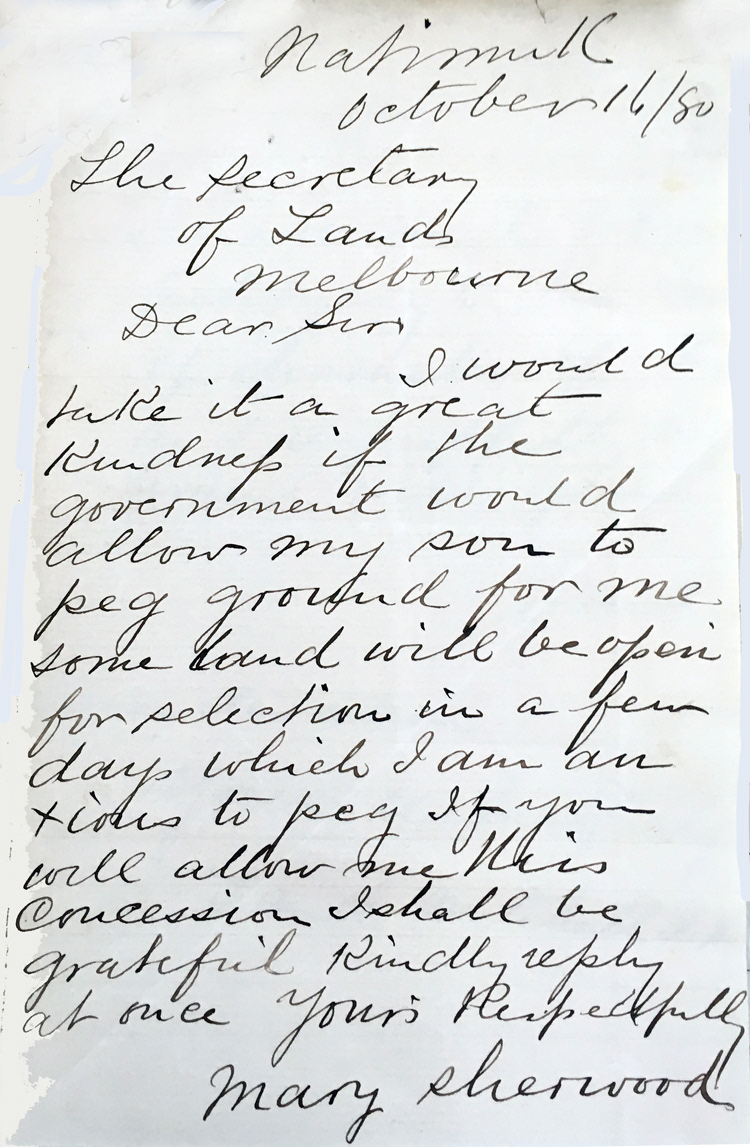 Natimuk
October 16/80
The Secretary
of Lands
Melbourne
Dear Sir
I would
take it a great
Kindness if the
government would
allow my son to
peg ground for me
some land will be open
for selection in a few
days which I am an
xious to peg If you
will allow me this
Concession I shall be
grateful Kindly reply
at once Yours Respectfully
Mary Sherwood